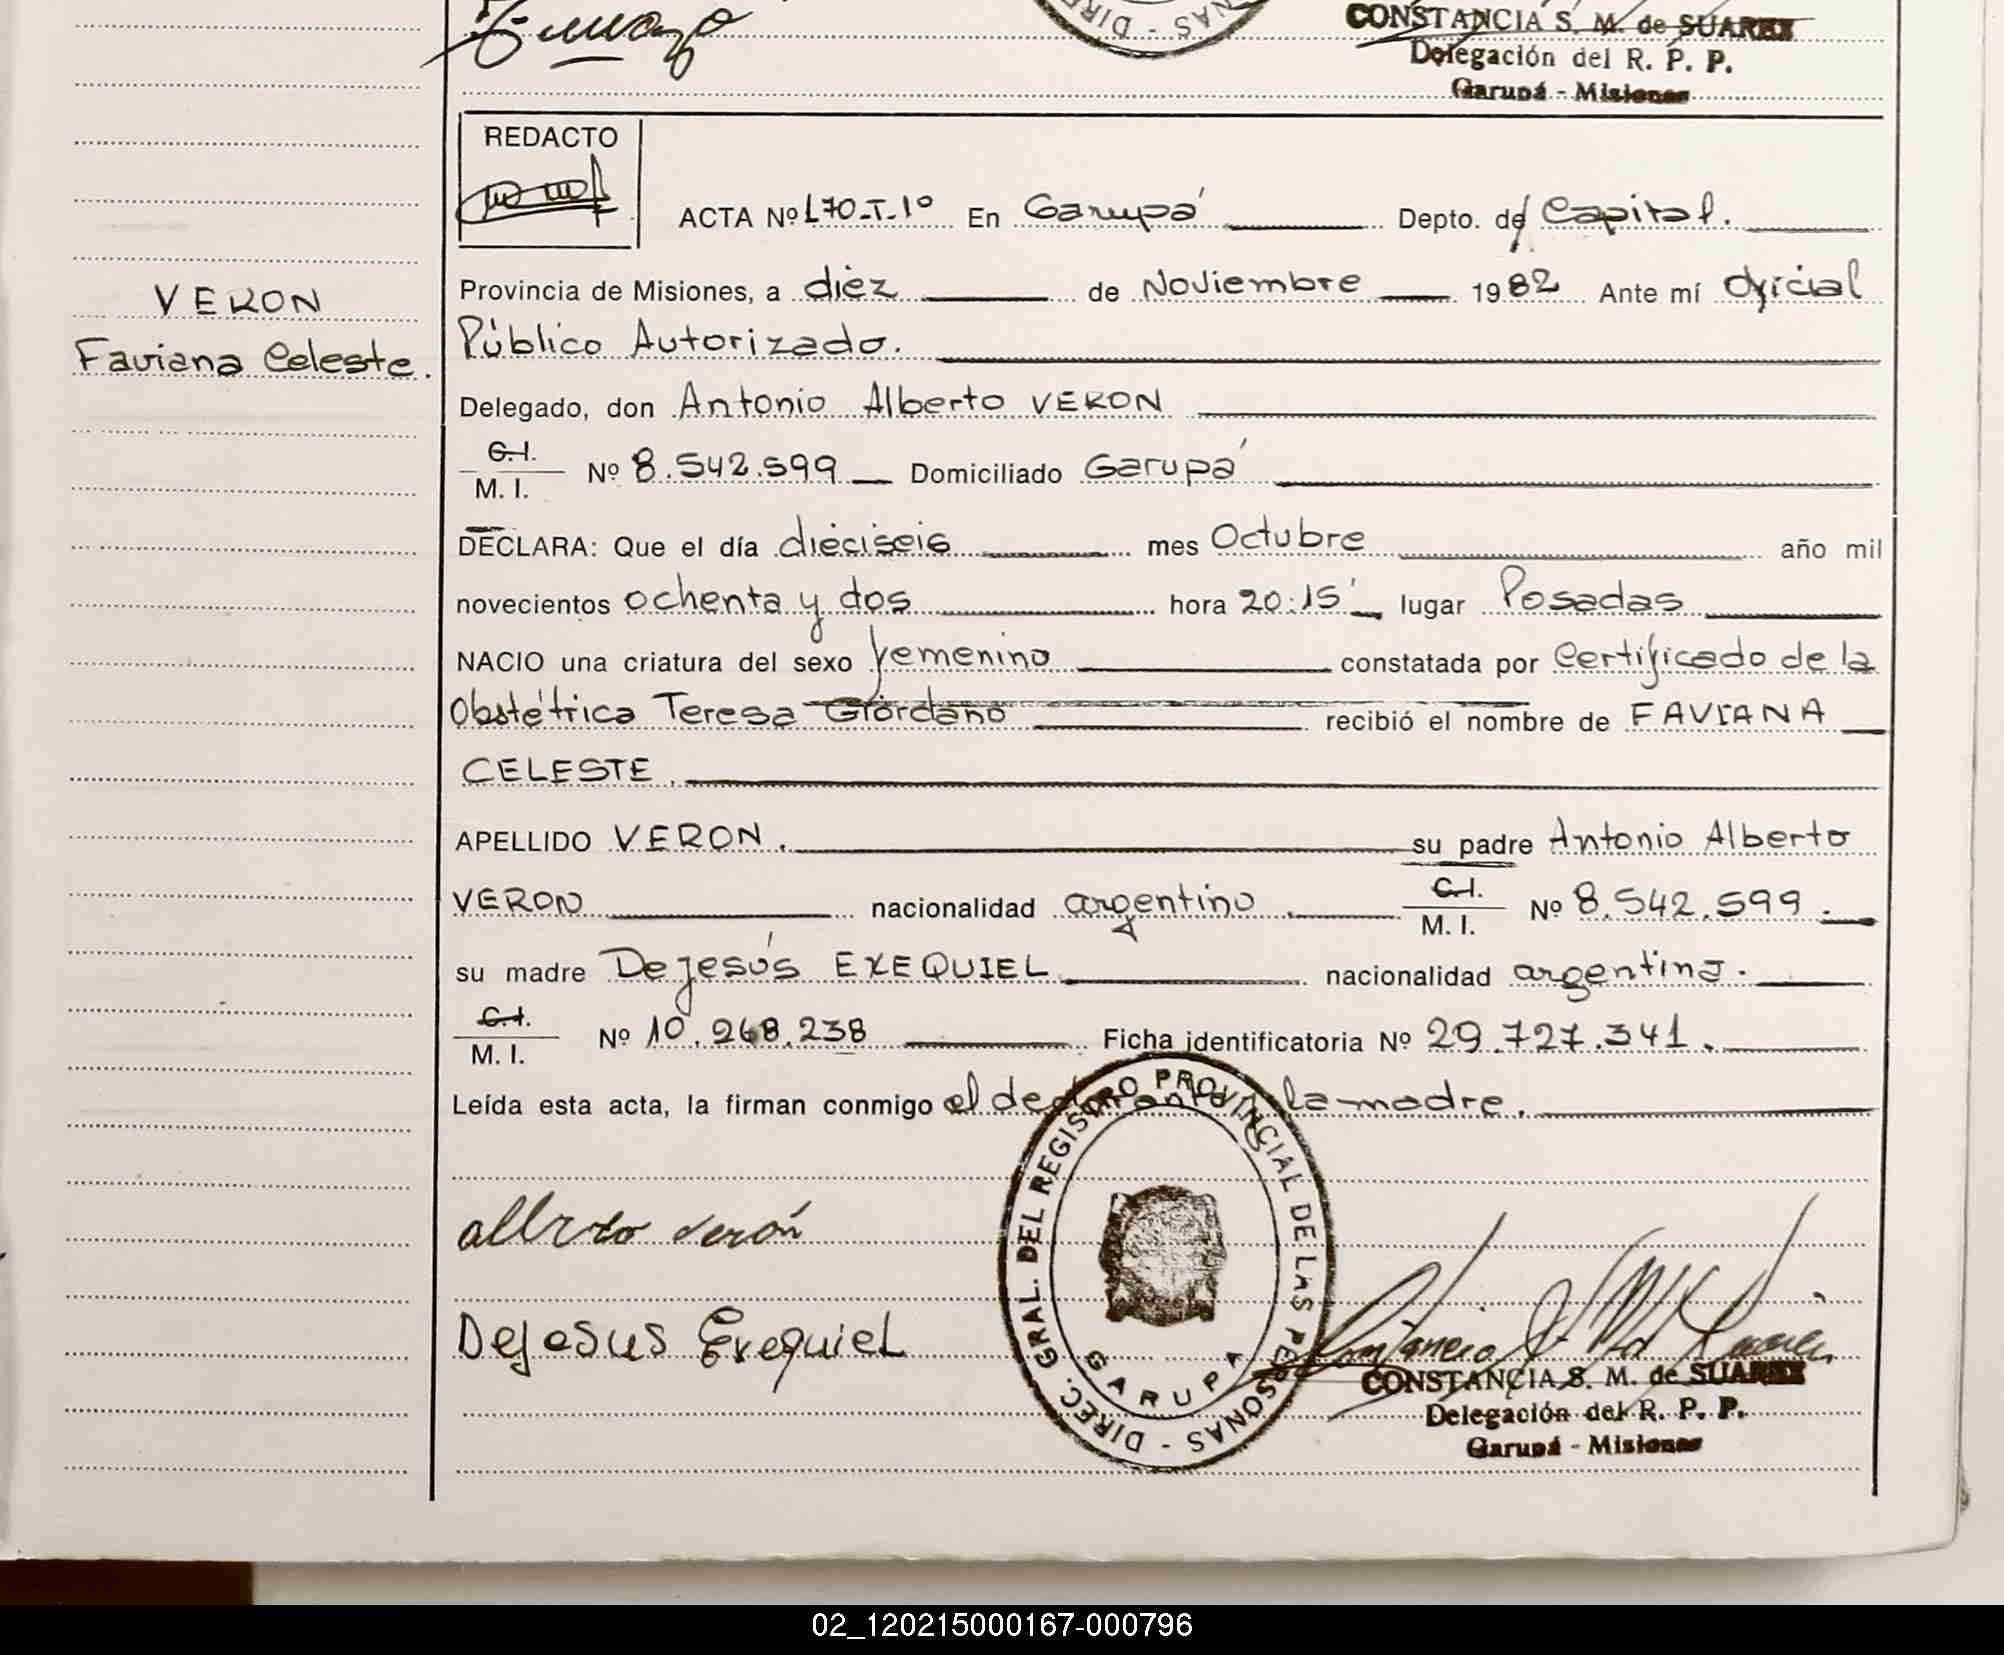 CONSTANCIA S. M. de SUAREZ
Delegación del R. P. P.
Garupá - Misiones
REDACTO
ACTA Nº 170-T-1º En Garupá Depto. de Capital.
Provincia de Misiones, a diez de Noviembre 1982 Ante mí Oficial
Público Autorizado.
Delegado, don Antonio Alberto VERON
C.I.
M. I. Nº 8.542.599 Domiciliado Garupá
DECLARA: Que el día dieciseis mes Octubre año mil
novecientos ochenta y dos hora 20:15' lugar Posadas
NACIO una criatura del sexo femenino constatada por Certificado de la
Obstétrica Teresa Giordano recibió el nombre de FAVIANA
CELESTE.
APELLIDO VERON. su padre Antonio Alberto
VERON nacionalidad argentino. C.I.
M. I. Nº 8.542.599.
su madre Dejesús EXEQUIEL nacionalidad argentina.
C.I.
M. I. Nº 10.268.238 Ficha identificatoria Nº 29.727.341.
Leída esta acta, la firman conmigo el declarante y la madre.
VERON
Faviana Celeste.
alberto verón
Dejesus Exequiel
DIREC. GRAL. DEL REGISTRO PROVINCIAL DE LAS PERSONAS -
GARUPA
CONSTANCIA S. M. de SUAREZ
Delegación del R. P. P.
Garupá - Misiones
02_120215000167-000796